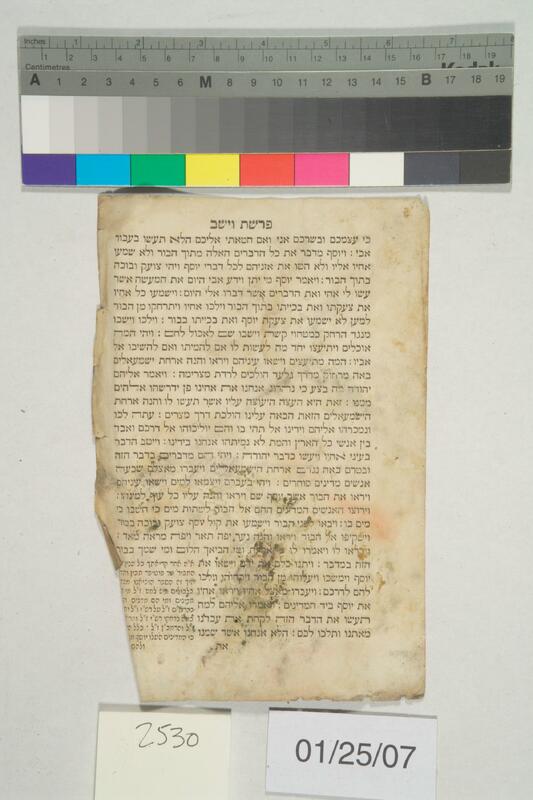 Inches 1 2 3 4 5 6 7 8
Centimetres 1 2 3 4 5 6 7 8 9 10 11 12 13 14 15 16 17 18 19
Kodak
A 1 2 3 4 5 6 M 8 9 10 11 12 13 14 15 B 17 18 19
פרשת וישב
כי עצמכם ובשרכם אני ואם חטאתי אליכם הלא תעשו בעבור
אבי : ויוסף מדבר את כל הדברים האלה מתוך הבור ולא שמעו
אחיו אליו ולא הטו את אזניהם לכל דברי יוסף ויהי צועק ובוכה
בתוך הבור : ויאמר יוסף מי יתן וידע אבי היום את המעשה אשר
עשו לי אחי ואת הדברים אשר דברו אלי היום : וישמעו כל אחיו
את צעקתו ואת בכייתו בתוך הבור וילכו אחיו ויתרחקו מן הבור
למען לא ישמעו את צעקת יוסף ואת בכייתו בבור : וילכו וישבו
מנגד הרחק כמטחוי קשת וישבו שם לאכול לחם : ויהי המה
אוכלים ויתיעצו יחד מה לעשות לו אם להמיתו ואם להשיבו אל
אביו : המה מתיעצים וישאו עיניהם ויראו והנה ארחת ישמעאלים
באה מרחוק מדרך גלעד הולכים לרדת מצרימה : ויאמר אליהם
יהודה מה בצע כי נהרוג אנחנו את אחינו פן ידרשהו אלהים
ממנו : זאת היא העצה היעוצה עליו אשר תעשו לו והנה ארחת
הישמעאלים הזאת הבאה עלינו הולכת דרך מצרים : עתה לכו
ונמכרהו אליהם וידינו אל תהי בו והם יוליכוהו אל דרכם ואבד
בין אנשי כל הארץ והמת לא נמיתהו אנחנו בידינו : וייטב הדבר
בעיני אחיו ויעשו כדבר יהודה : ויהי הם מדברים בדבר הזה
ובטרם באה נגדם ארחת הישמעאלים ויעברו מאצלם שבעה
אנשים מדינים סוחרים : ויהי בעברם ויצמאו למים וישאו עיניהם
ויראו את הבור אשר יוסף שם ויראו והנה עליו כל עוף למינהו :
וירוצו האנשים המדינים ההם אל הבור לשתות מים כי חשבו מי
מים בו : ויבאו לפני הבור וישמעו את קול יוסף צועק ובוכה בבור
וישקיפו אל הבור ויראו והנה נער יפה תאר ויפה מראה מאד :
ויקראו לו ויאמרו לו ומי הביאך הלום ומי שמך בבור
הזה במדבר : ויתנו כלם יחד וישאו את
יוסף וימשכו ויעלוהו מן הבור ויקחוהו וילכו
להם לדרכם : ויעברו מאצל אחיו ויראו אחיו
את יוסף ביד המדינים : ויאמרו אליהם למה
תעשו את הדבר הזה לקחת את עבדנו
מאתנו ותלכו לכם : הלא אנחנו אשר שמנו
את
2530
01/25/07